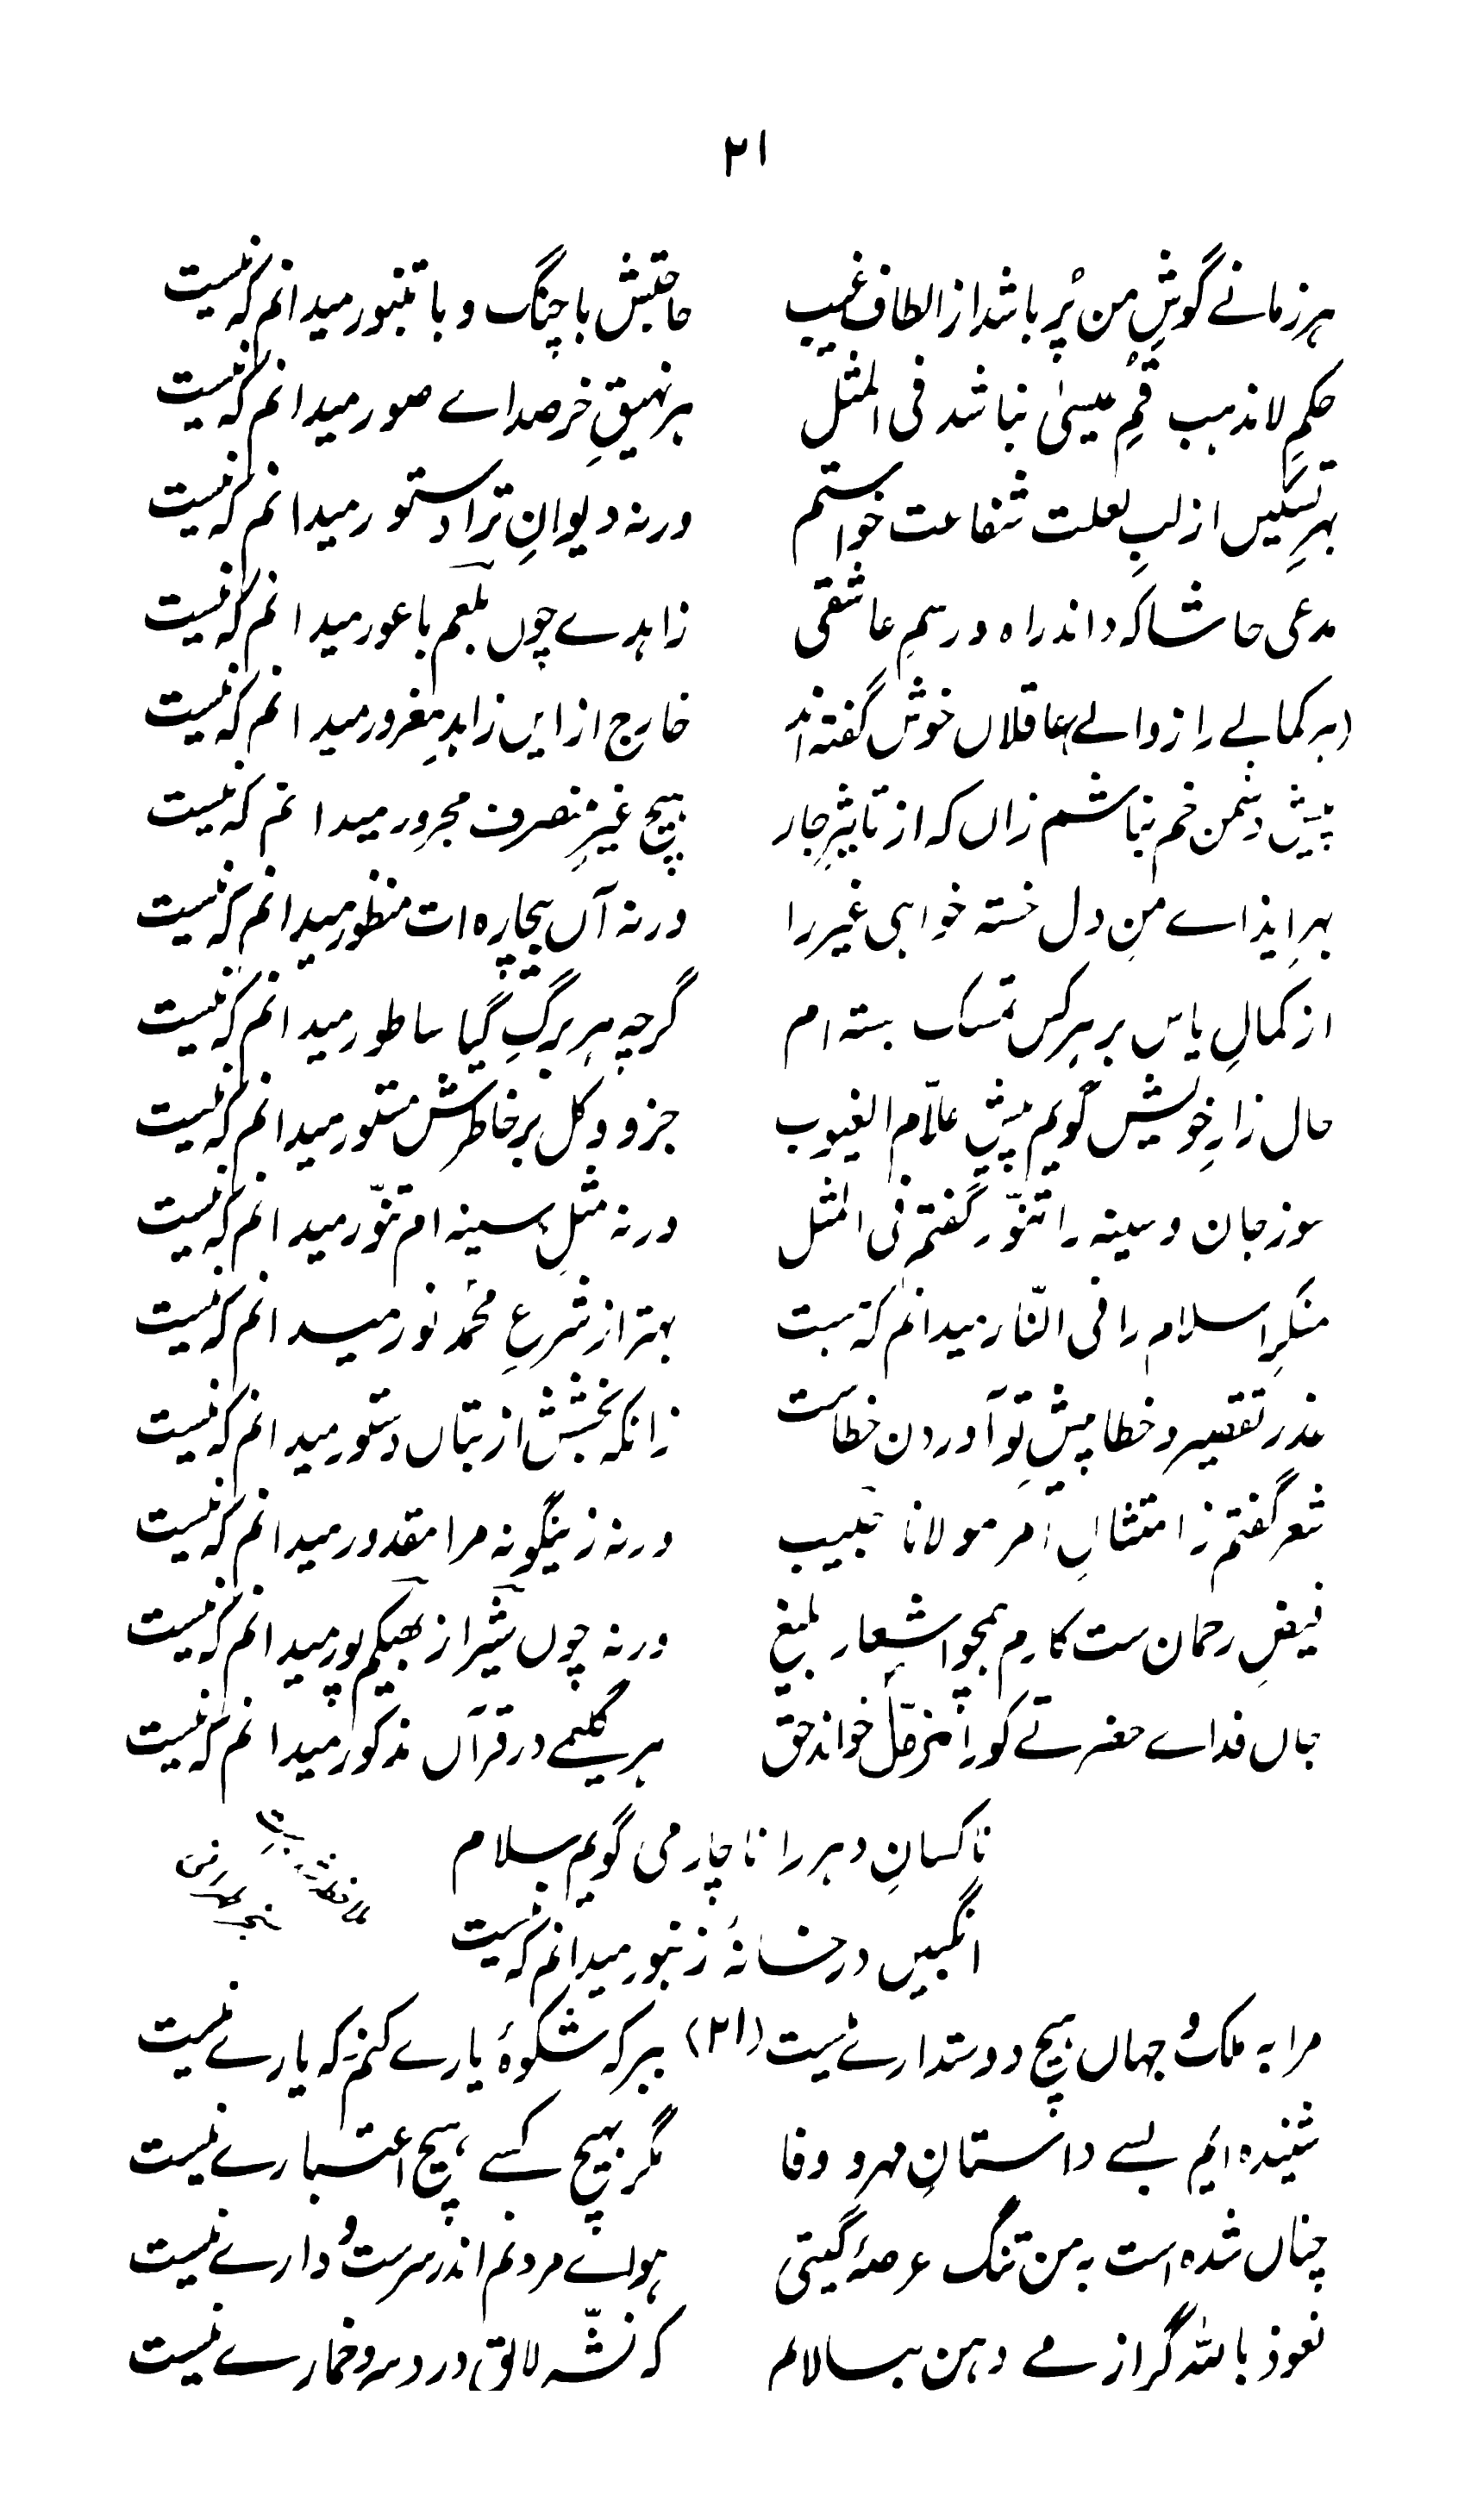 ۲۱
ہر زمانے گوشِ من پُر باشد از الطافِ غیب حاجتیش با چنگ و با تنبور میدانم کہ نیست
حکمِ لا مذہب قُمِ عیسیٰ نباشد فی المثل ہر نہیقِ خر صداے صور میدانم کہ نیست
بہرِ تسکیں از لبِ لعلت شفاعت خواستم ورنہ دیوانِ ترا دستور میدانم کہ نیست
مدعی حاشا کہ داند راہ و رسمِ عاشقی زاہدے چوں بلعم باعور میدانم کہ نیست
ہر کمالے را زوالے عاقلاں خوش گفتہ اند خارج از ایں زاہدِ مغرور میدانم کہ نیست
پیش دشمن خم نباشم زاں کہ از تاثیرِ جار ہیچ غیرِ منصرف مجرور میدانم کہ نیست
بہرِ ایذاے منِ دل خستہ خواہی غیر را ورنہ آں بیچارہ ات منظور میدانم کہ نیست
از کمالِ یاس بر ہر کس تمسک بستہ ام گرچہ ہر برگِ گیا ساطور میدانم کہ نیست
حال زارِ خویش گویم پیشِ علّام الغیوب جزو و کل بر خاطرش مستور میدانم کہ نیست
سوز جان و سینہ را تنّور گفتم فی المثل ورنہ مثلِ سینہ ام تنّور میدانم کہ نیست
منکرِ اسلام را فی النّار میدانم کہ ہست بہتر از شرعِ محمدؐ نور میدانم کہ نیست
عذر تقصیر و خطا پیشِ تو آوردن خطاست زانکہ بخشش از بتاں دستور میدانم کہ نیست
شعر گفتم ز امتثالِ امر مولانا حبیب ورنہ زینگونہ مرا مقدور میدانم کہ نیست
فیضِ رحمان ست کارم ہمچو اشعار بلیغ ورنہ چوں شیراز بھیکم پور میدانم کہ نیست
جاں فداے حضرتے کو را مزمّل خواند حق ہر گلیمے در قرآں مذکور میدانم کہ نیست
ناکسانِ دہر را ناچار می گویم سلام
انگبیں در خانۂ زنبور میدانم کہ نیست
مرا بہ ملک جہاں ہیچ دوستدارے نیست (۲۱) بہر کہ شکوۂ یارے کنم کہ یارے نیست
شنیدہ ایم بسے داستانِ مہر و وفا مگر بہیچ کسے، ہیچ اعتبارے نیست
چناں شدہ است بہ من تنگ عرصۂ گیتی ہواے مردنم اندر سرست و دارے نیست
نعوذ باللہ گر از مے دہن بیالایم کہ نشّہ لائق دردسر و خمارے نیست